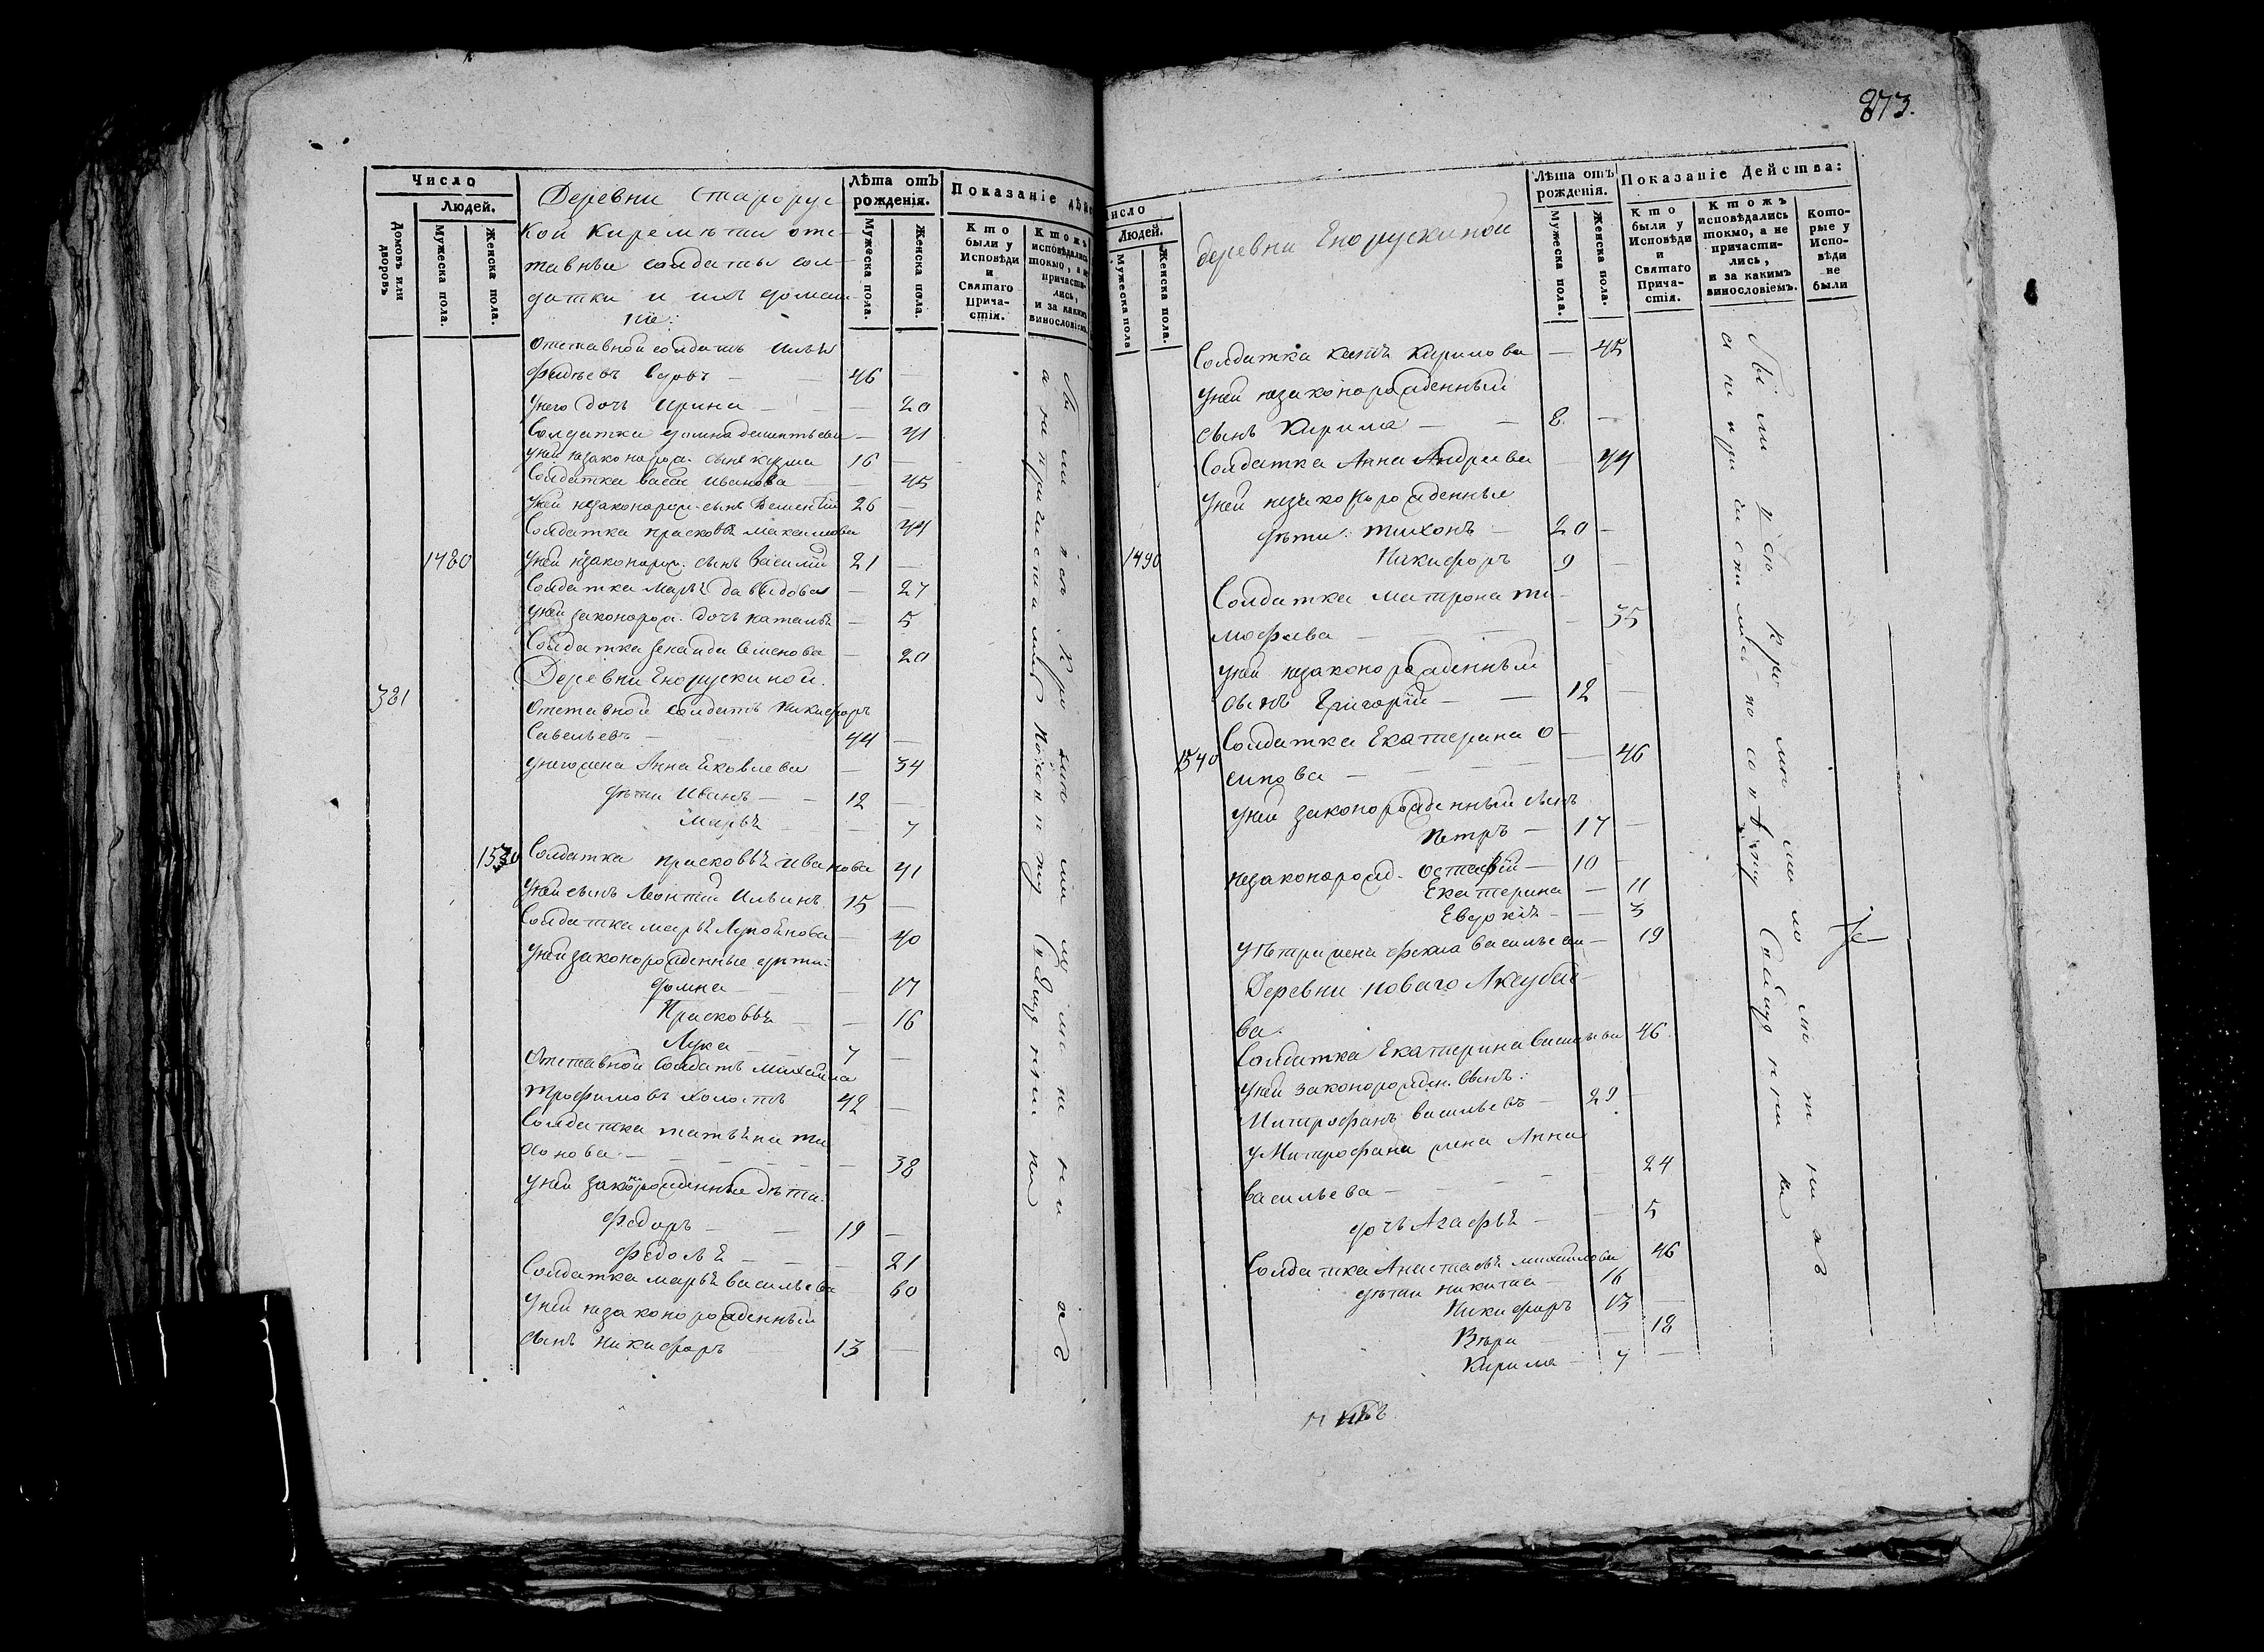 873.
Число
Людей.
Домовъ или дворовъ
Мужеска пола.
Женска пола.
Лѣта отъ рожденія.
Мужеска пола.
Женска пола.
Показаніе дѣй
Кто были у Исповѣди и Святаго Прича- стія.
Ктожъ исповѣдались токмо, а не причасти- лись, и за какимъ винословіемъ.
Деревни Старорус
кой Киреметы отс-
тавные солдаты сол-
датки и ихъ домаш-
ніе:
Отставной солдатъ Илья
Фадѣевъ вдовъ — 46 —
Унего дочь Ирина — — 20
Солдатка Домна Дементьева — 41
Уней незаконорож. сынъ Кузма 16 —
Солдатка Васса Иванова — 45
Уней незаконорож. сынъ Дементій 26 —
Солдатка Прасковья Максимова 44
1480 Уней незаконорож. сынъ Василій 21 —
Солдатка Марья Давыдова — 27
Уней законорож. дочь Наталья — 5
Солдатка Зенаида Семенова — 20
Деревни Енорускиной.
381
Отставной солдатъ Никифоръ
Савельевъ — 44 —
Унего жена Анна Яковлева — 34
дѣти Иванъ — 12 —
Марья — 7
1530 Солдатка Прасковья Иванова 41
Уней сынъ Леонтій Ильинъ 15 —
Солдатка Марья Лукоянова — 40
Уней законорожденные дѣти:
Домна — — 17
Прасковья — — 16
Лука — 7 —
Отставной солдатъ Михайла
Трофимовъ холостъ 42 —
Солдатка Татьяна Ти
хонова — — 38
Уней законорожденные дѣти:
Федоръ — 19 —
Федосья — — 21
Солдатка Марья Васильева 60
Уней незаконорожденный
сынъ Никифоръ 13 —
Число
Людей.
Мужеска пола
Женска пола.
деревни Енорускиной
Лѣта отъ рожденія.
Мужеска пола.
Женска пола.
Показаніе Дѣйства:
Кто были у Исповѣди и Святаго Прича- стія.
Ктожъ исповѣдались токмо, а не причасти- лись, и за какимъ винословіемъ.
Кото- рые у Испо- вѣди не были
Солдатка Кирилова — 45
Уней незаконорожденный
сынъ Кирила — 8 —
Солдатка Анна Андреева — 44
Уней незаконорожденные
дѣти: Тихонъ — 20 —
1490 Никифоръ 9 —
Солдатка Матрона Ти-
мофеева — — 35
Уней незаконорожденный
сынъ Григорій — 12 —
Солдатка Екатерина О-
1540 сипова — — 46
Уней законорожденный сынъ
Петръ — 17 —
незаконорожд. Остафій — 10 —
Екатерина — 11
Евдокія — — 3
У Петра жена Фекла Васильева — 19
Деревни новаго Аксубае-
ва.
Солдатка Екатерина Васильева 46
Уней законорожден. сынъ:
Митрофанъ Васильевъ — 29 —
У Митрофана жена Анна
Васильева — — 24
дочь Агафья — — 5
Солдатка Анастасья Михайлова 46
дѣти Никита — 16 —
Никифоръ 13 —
Вѣра — 18
Кирила — 7 —